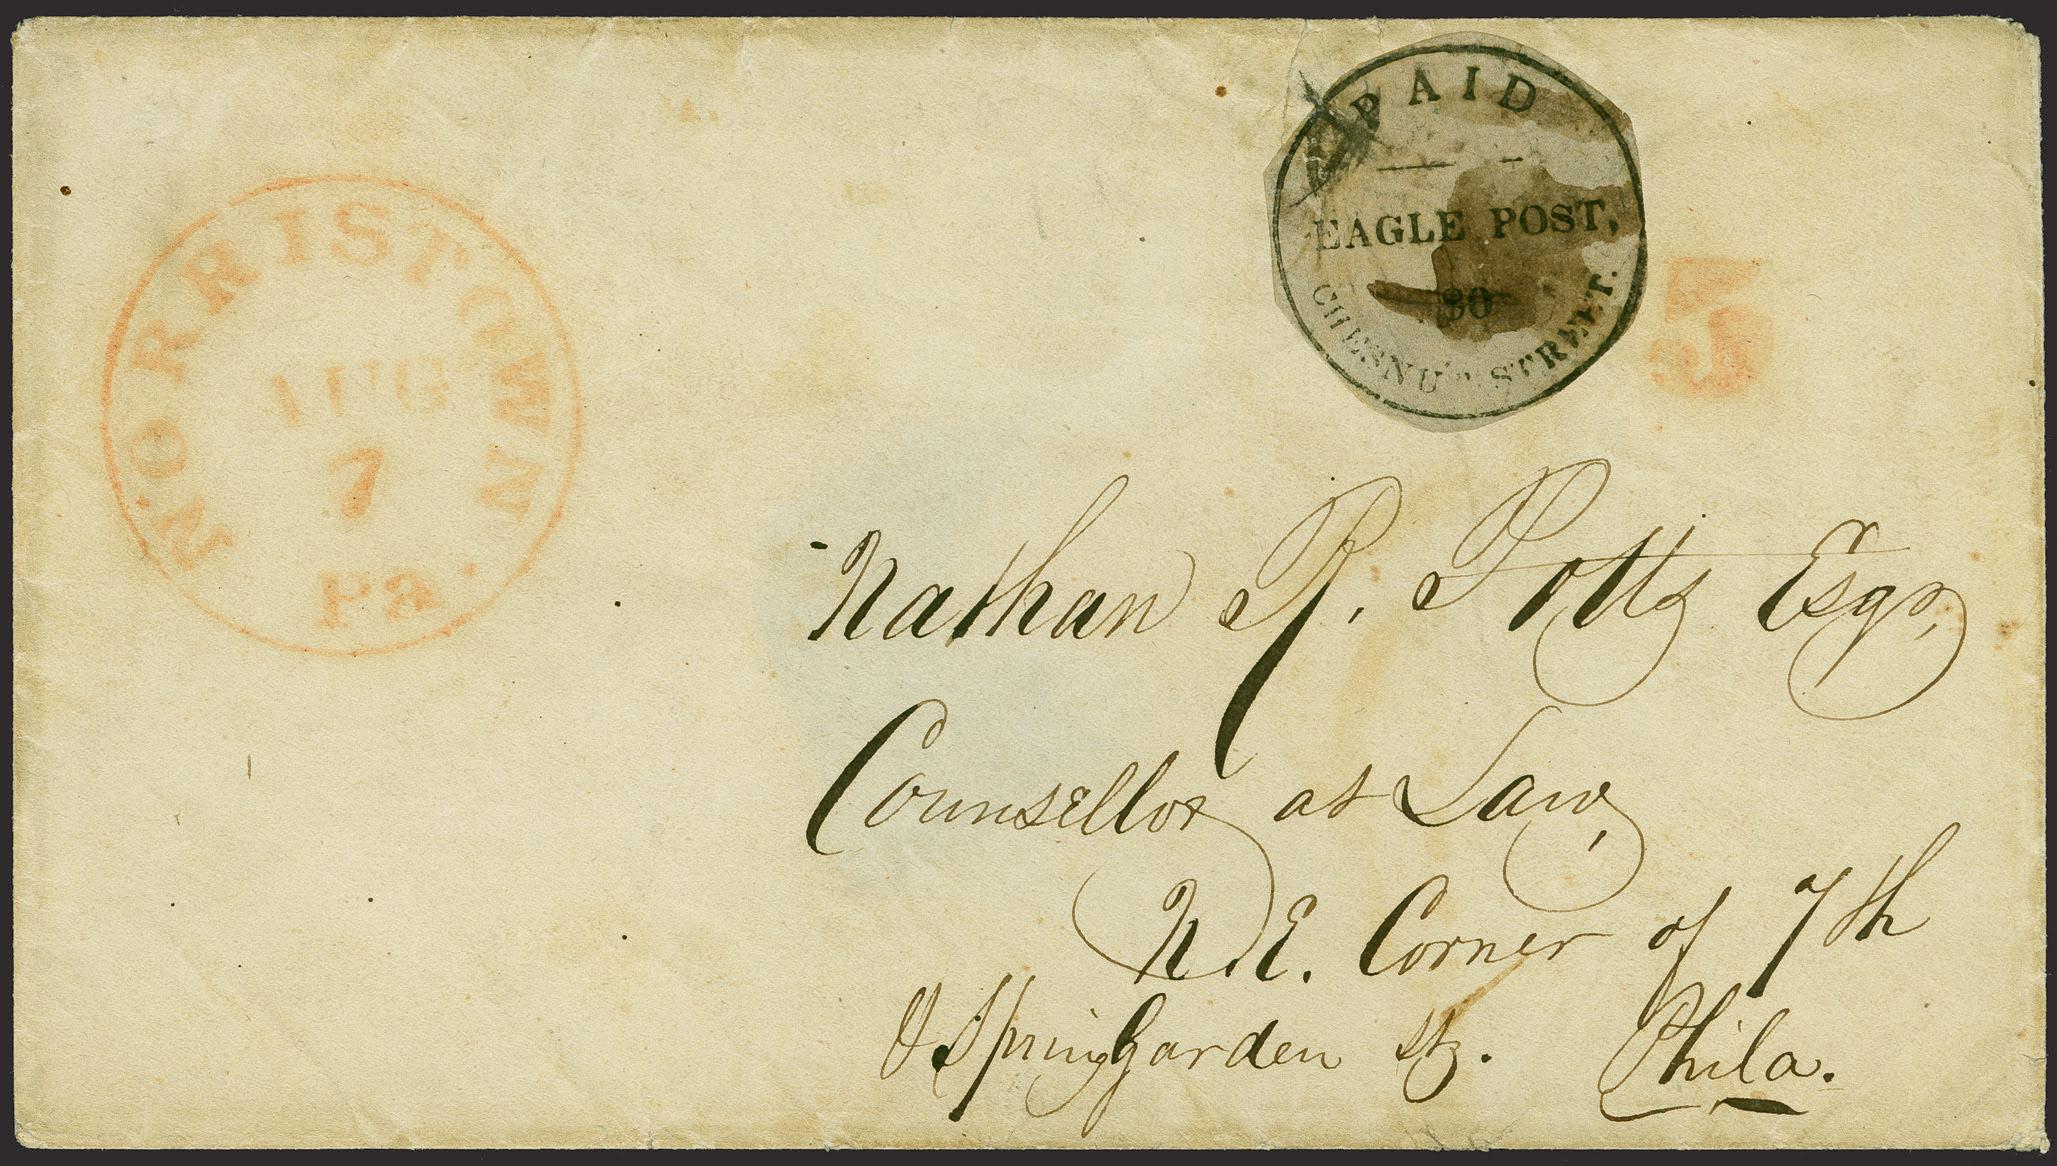 PAID
EAGLE POST,
80
CHESNUT STREET.
NORRISTOWN
AUG
7
Pa
5
Nathan R. Potts Esqr,
Counsellor at Law,
N.E. Corner of 7th
& Spring Garden Sts. Phila.